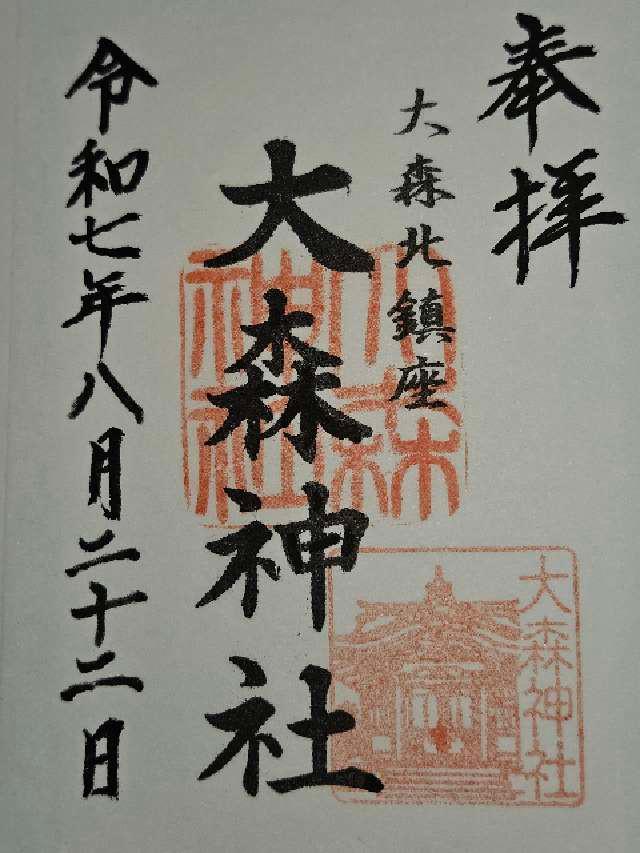 奉拝
大森北鎮座
大森神社
令和七年八月二十二日
大森神社
大森神社